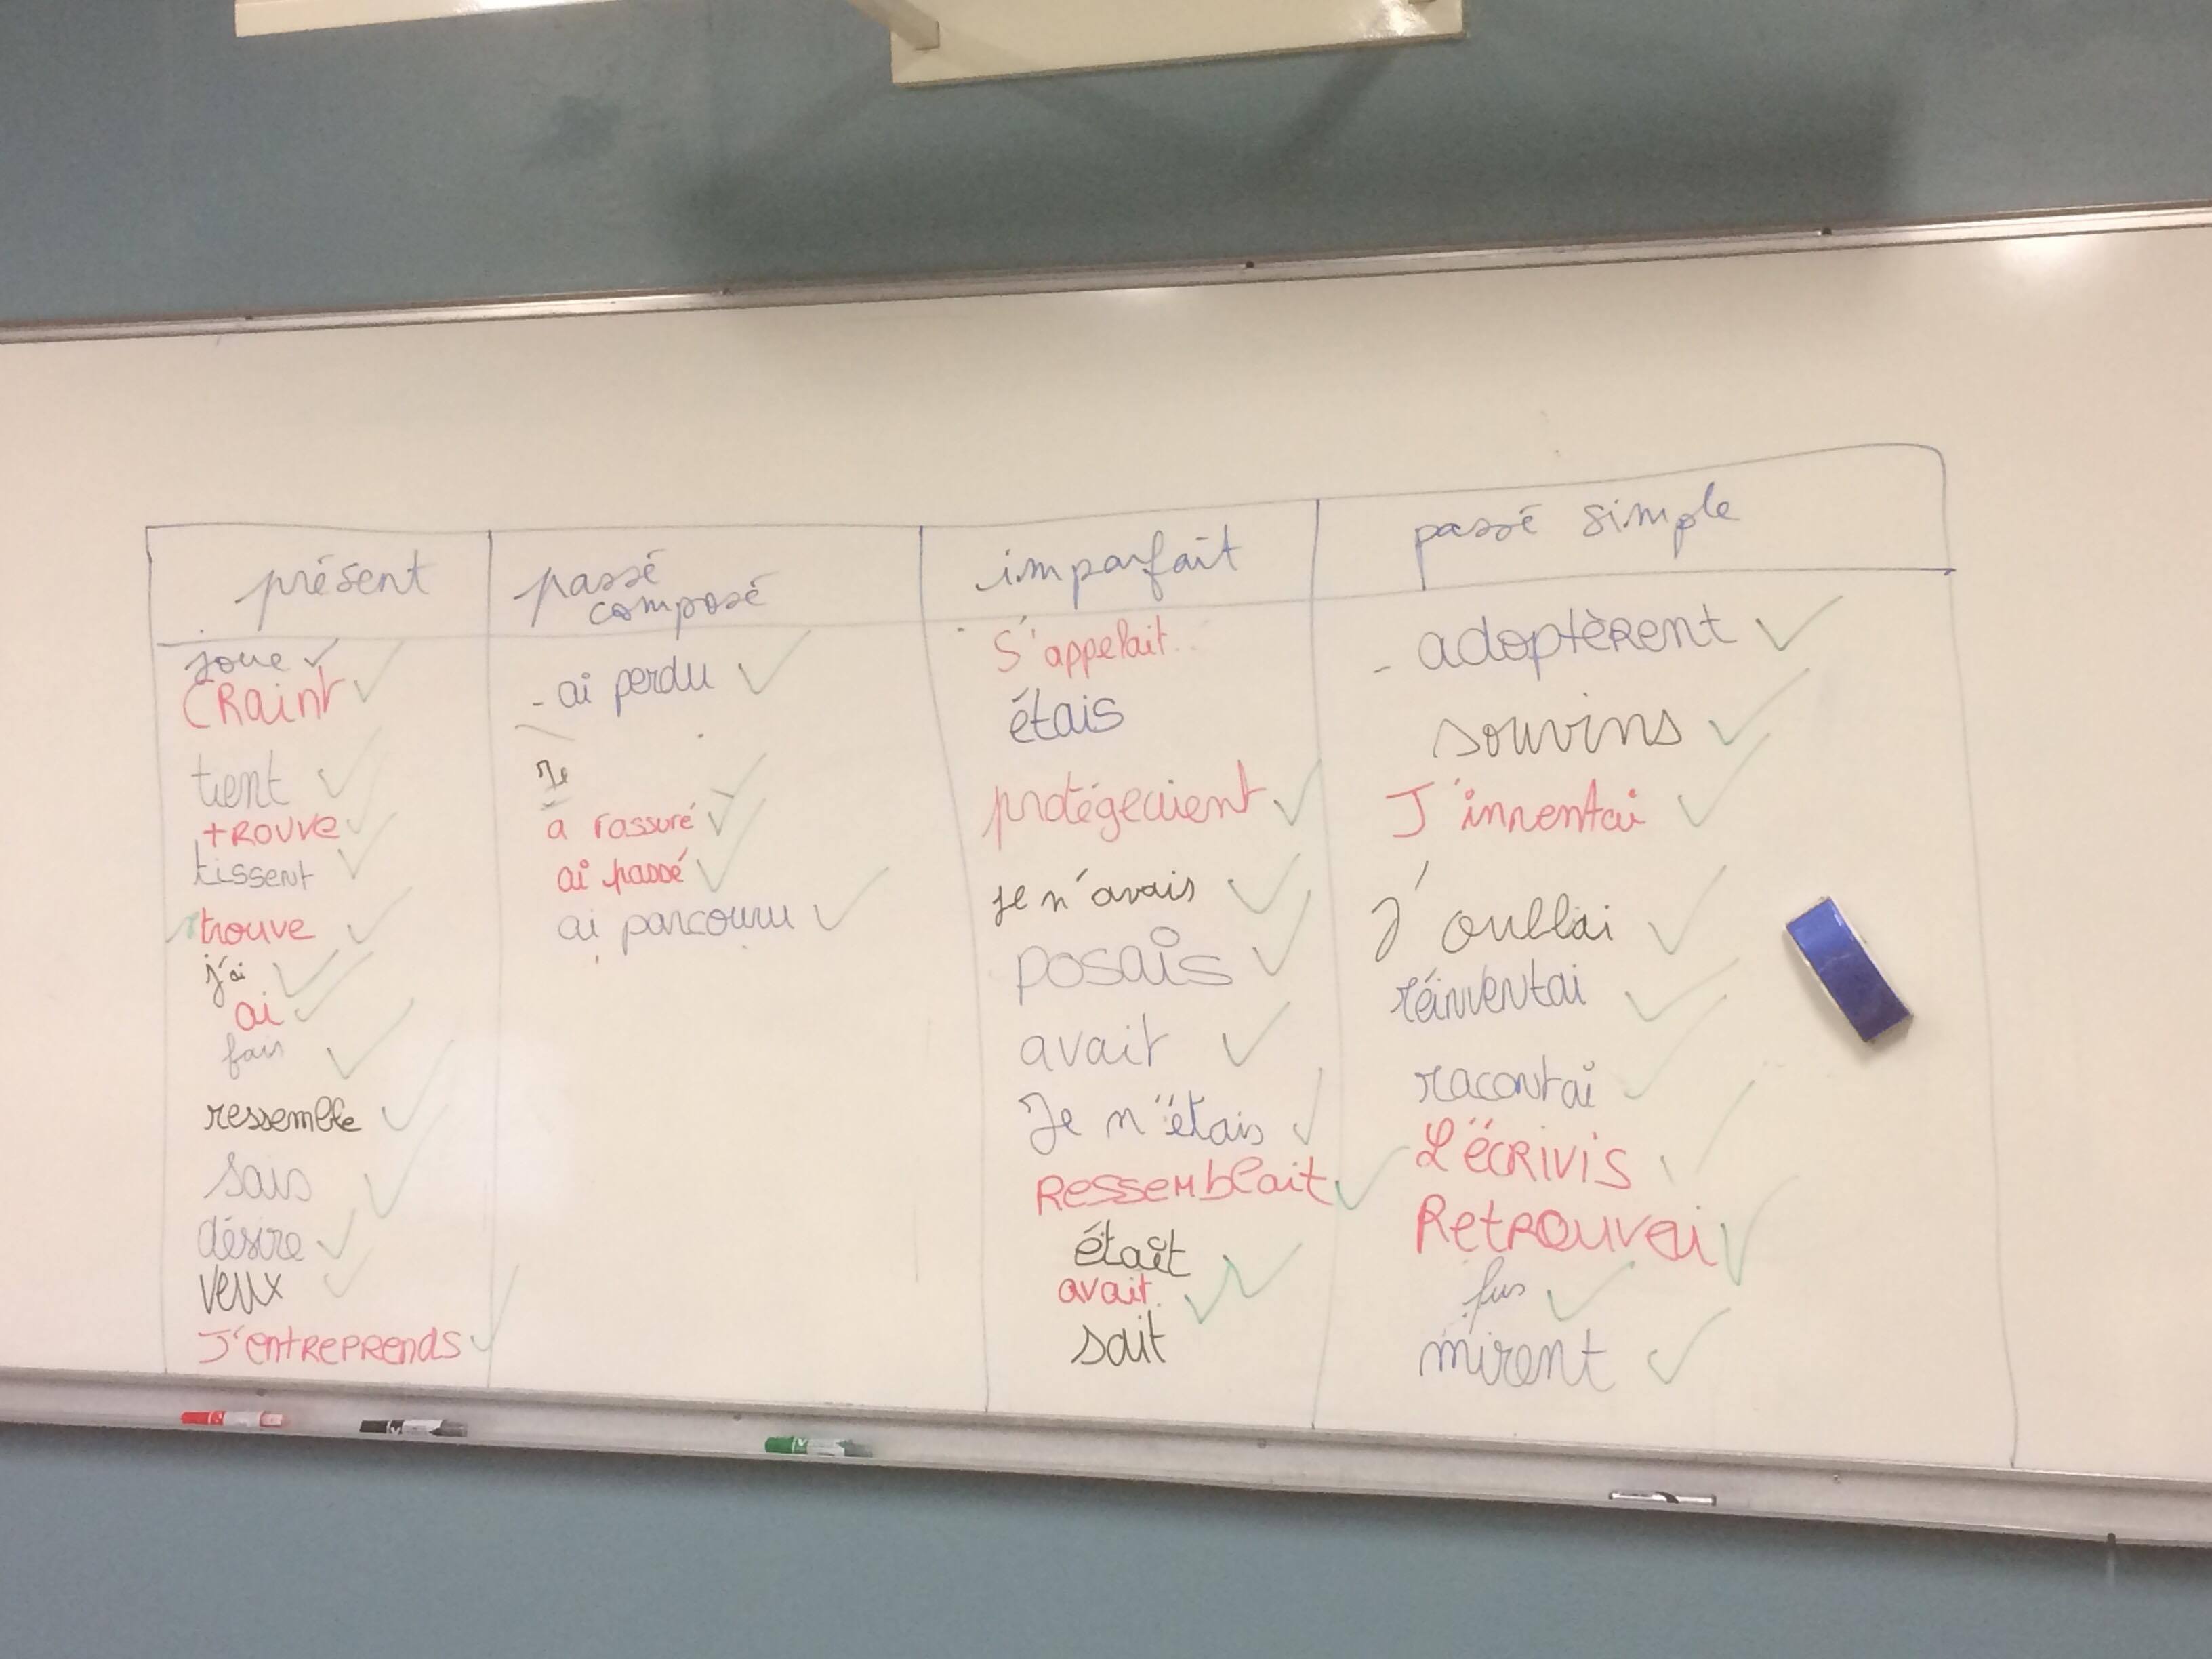 présent
joue
CRaint
tient
tROUVe
tissent
trouve
j'ai
ai
fais
ressemble
sais
désire
veux
J'entREPRENds
passé
composé
- ai perdu
Je
a rassuré
ai passé
ai parcouru
imparfait
S'appelait
étais
protégeaient
je n'avais
posais
avait
Je n'étais
Ressemblait
était
avait
sait
passé simple
- adoptèrent
souvins
J'inventai
J'oubliai
réinventai
racontai
L'éCRIVIS
RetROUVai
fus
mirent